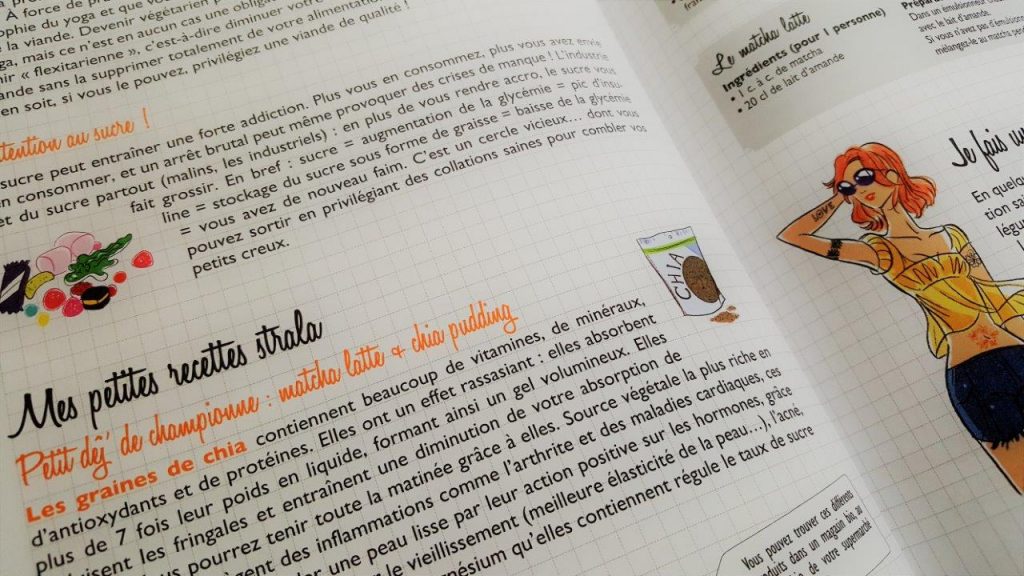 À force de pr
ophie du yoga et que vo
e la viande. Devenir végétarien p
ga, mais ce n'est en aucun cas une obligat
nir « flexitarienne », c'est-à-dire diminuer votre
ande sans la supprimer totalement de votre alimentatio
en soit, si vous le pouvez, privilégiez une viande de qualité !
ttention au sucre !
sucre peut entraîner une forte addiction. Plus vous en consommez, plus vous avez envie
en consommer, et un arrêt brutal peut même provoquer des crises de manque ! L'industrie
et du sucre partout (malins, les industriels) : en plus de vous rendre accro, le sucre vous
fait grossir. En bref : sucre = augmentation de la glycémie = pic d'insu-
line = stockage du sucre sous forme de graisse = baisse de la glycémie
= vous avez de nouveau faim. C'est un cercle vicieux... dont vous
pouvez sortir en privilégiant des collations saines pour combler vos
petits creux.
CHIA
Mes petites recettes strala
Petit déj' de championne : matcha latte & chia pudding
Les graines de chia contiennent beaucoup de vitamines, de minéraux,
d'antioxydants et de protéines. Elles ont un effet rassasiant : elles absorbent
plus de 7 fois leur poids en liquide, formant ainsi un gel volumineux. Elles
duisent les fringales et entraînent une diminution de votre absorption de
us pourrez tenir toute la matinée grâce à elles. Source végétale la plus riche en
gent des inflammations comme l'arthrite et des maladies cardiaques, ces
der une peau lisse par leur action positive sur les hormones, grâce
le vieillissement (meilleure élasticité de la peau...), l'acné,
gnésium qu'elles contiennent régule le taux de sucre
Le matcha latte
Ingrédients (pour 1 personne)
• 1 c. à c. de matcha
• 20 cl de lait d'amande
Prépara
Dans un émulsionneur
avec le lait d'amande.
Si vous n'avez pas d'émulsionn
mélangez-le au matcha
Je fais un
LOVE
En quelqu
tion sa
légu
Vous pouvez trouver ces différents
produits dans un magasin bio, au
de votre supermarché